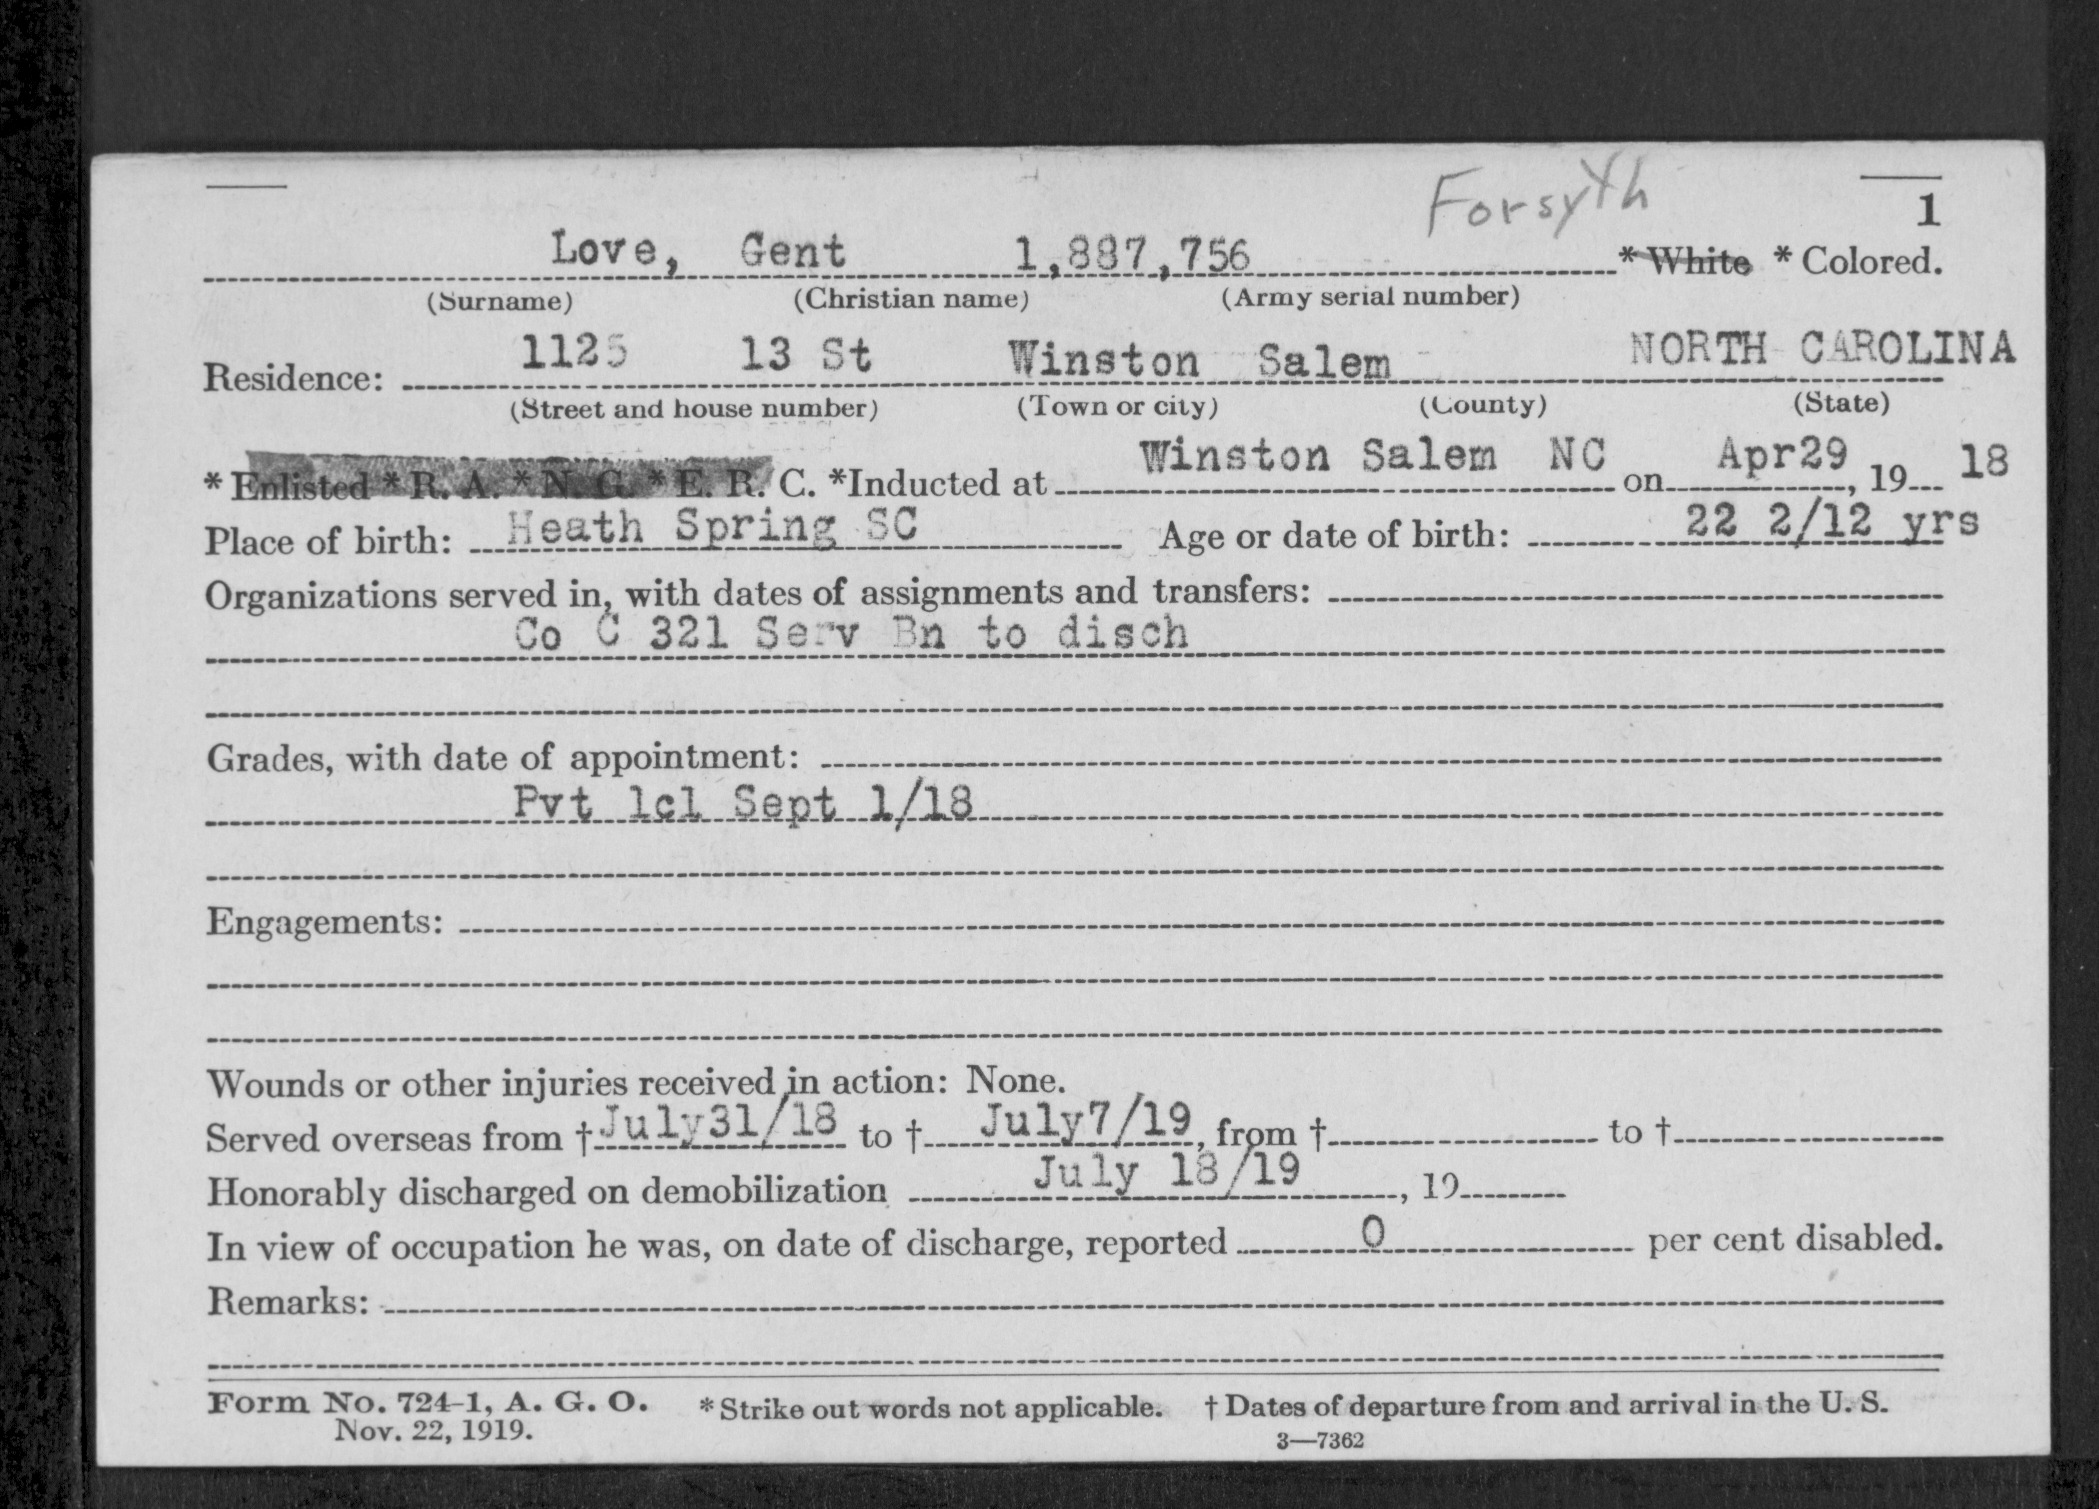 Forsyth
1
Love, Gent 1,887,756 * White * Colored.
(Surname) (Christian name) (Army serial number)
Residence: 1125 13 St Winston Salem NORTH CAROLINA
(Street and house number) (Town or city) (County) (State)
* Enlisted * R. A. * N. G. * E. R. C. *Inducted at Winston Salem NC on Apr29, 19 18
Place of birth: Heath Spring SC Age or date of birth: 22 2/12 yrs
Organizations served in, with dates of assignments and transfers:
Co C 321 Serv Bn to disch
Grades, with date of appointment:
Pvt 1cl Sept 1/18
Engagements:
Wounds or other injuries received in action: None.
Served overseas from † July31/18 to † July7/19, from † to †
Honorably discharged on demobilization July 18/19, 19
In view of occupation he was, on date of discharge, reported 0 per cent disabled.
Remarks:
Form No. 724-1, A. G. O. * Strike out words not applicable. † Dates of departure from and arrival in the U. S.
Nov. 22, 1919. 3—7362